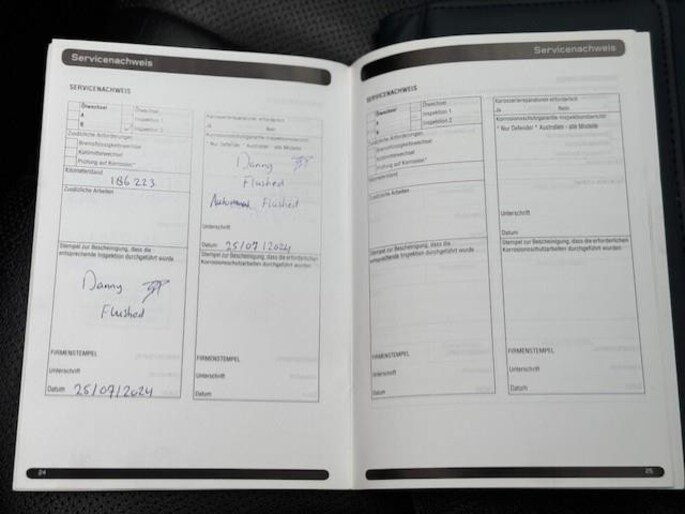 Servicenachweis
SERVICENACHWEIS
Ölwechsel
A
Inspektion 1
B
Inspektion 2
Zusätzliche Anforderungen:
Bremsflüssigkeitswechsel
Kühlmittelwechsel
Prüfung auf Korrosion*
Kilometerstand
186 223
Zusätzliche Arbeiten
Stempel zur Bescheinigung, dass die
entsprechende Inspektion durchgeführt wurde
Danny
Flushed
FIRMENSTEMPEL
Unterschrift
Datum 25/07/2024
Karosseriereparaturen erforderlich
Ja Nein
Korrosionsschutzgarantie-Inspektionsbericht:
* Nur Defender * Australien - alle Modelle
Danny
Flushed
Flushed
Unterschrift
Datum 25/07/2024
Stempel zur Bescheinigung, dass die erforderlichen
Korrosionsschutzarbeiten durchgeführt wurden
FIRMENSTEMPEL
Unterschrift
Datum
24
Servicenachweis
SERVICENACHWEIS
Ölwechsel
A
Inspektion 1
B
Inspektion 2
Zusätzliche Anforderungen:
Bremsflüssigkeitswechsel
Kühlmittelwechsel
Prüfung auf Korrosion*
Kilometerstand
Zusätzliche Arbeiten
Stempel zur Bescheinigung, dass die
entsprechende Inspektion durchgeführt wurde
FIRMENSTEMPEL
Unterschrift
Datum
Karosseriereparaturen erforderlich
Ja Nein
Korrosionsschutzgarantie-Inspektionsbericht:
* Nur Defender * Australien - alle Modelle
Unterschrift
Datum
Stempel zur Bescheinigung, dass die erforderlichen
Korrosionsschutzarbeiten durchgeführt wurden
FIRMENSTEMPEL
Unterschrift
Datum
25